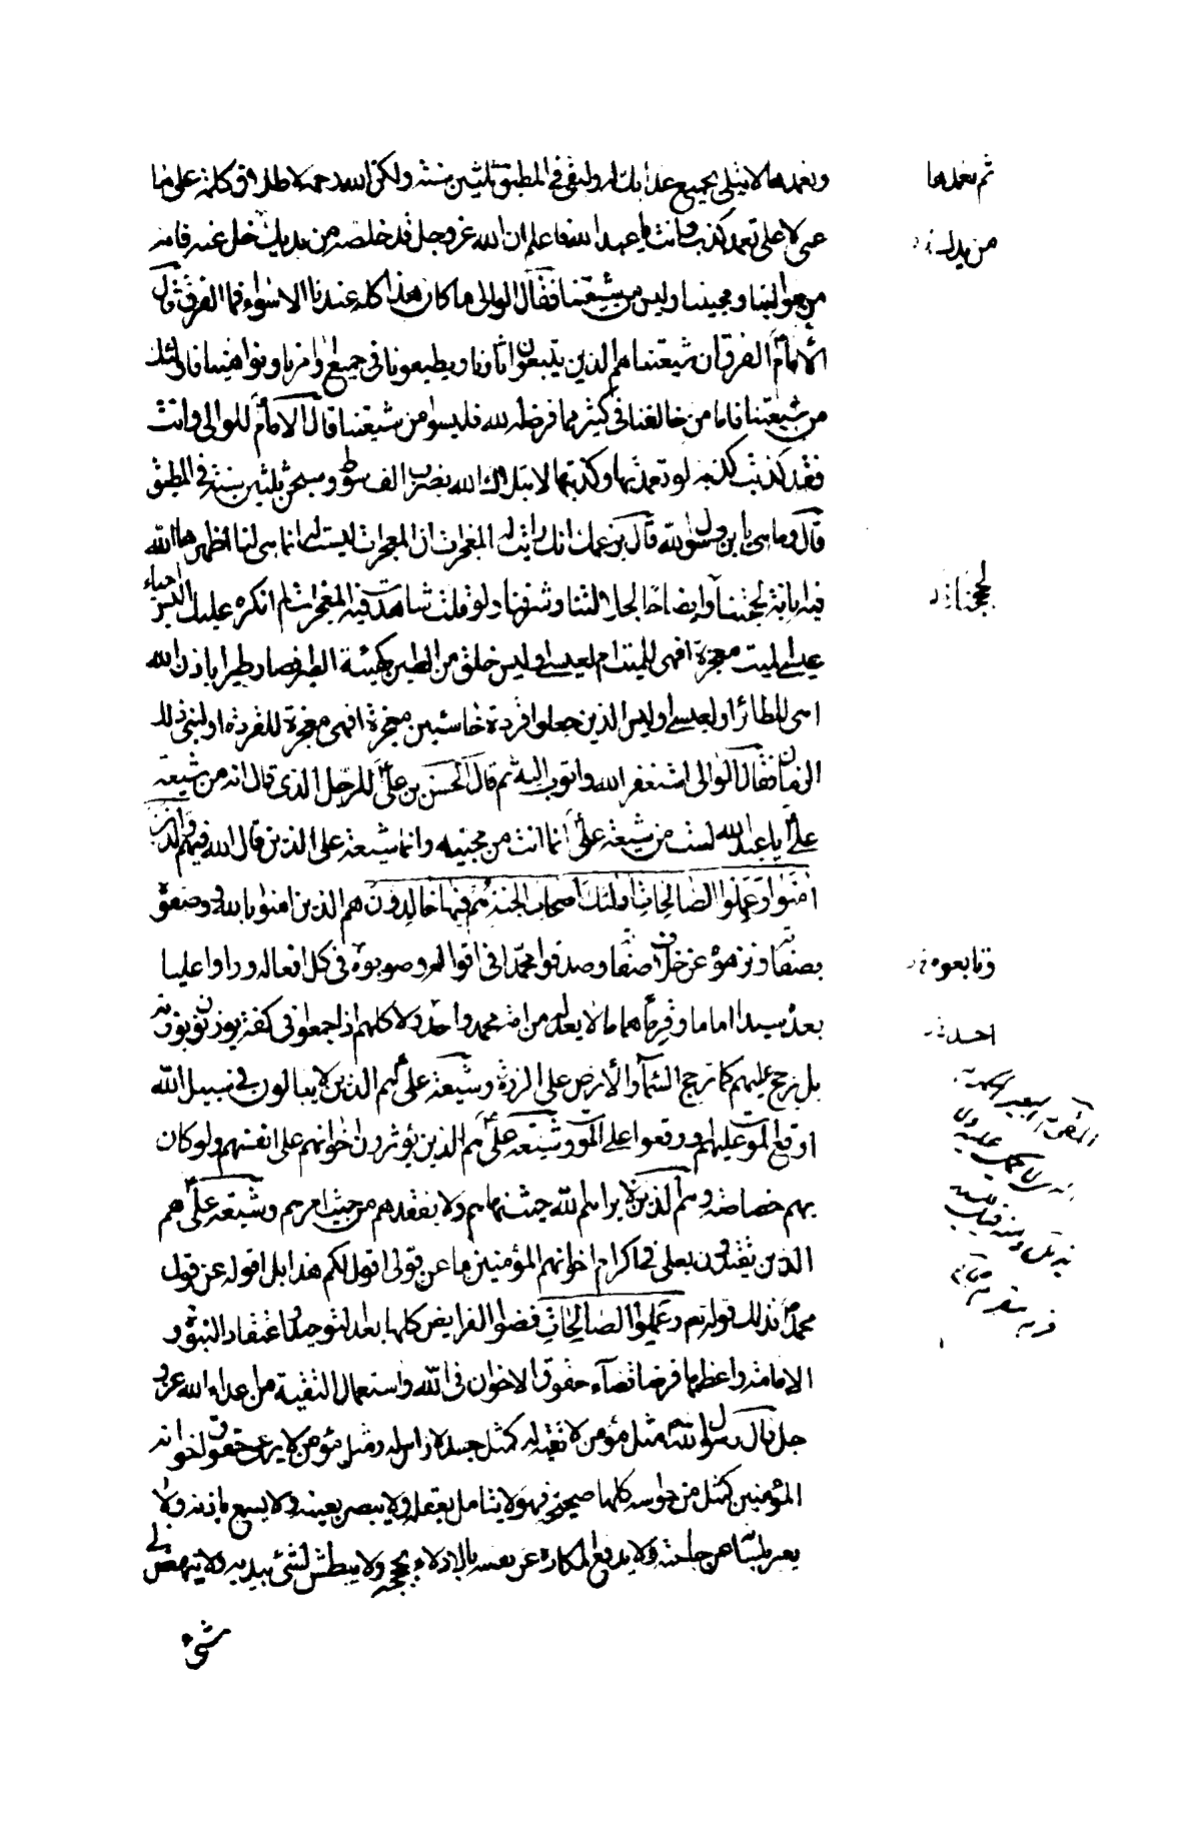 وتعمدها لابتلي بجميع عذابك له ولبقي في المطبق ثلثين سنة ولكن الله رحمه لاطلاق كلمة على ما
عنى لا على تعمد كذب وانت يا عبد الله فاعلم ان الله عز وجل قد خلصه من يديك خل عنه فانه
من موالينا ومحبينا وليس من شيعتنا فقال الوالي ما كان هذا كله عندنا الا سواء فما الفرق قال
الأمام الفرق ان شيعتنا هم الذين يتبعون اثارنا ويطيعونا في جميع اوامرنا ونواهينا فاولئك
من شيعتنا فاما من خالفنا في كثير مما فرضه الله فليسوا من شيعتنا قال الامام للوالي وانت
فقد كذبت كذبة لو تعمدتها وكذبتها لابتلاك الله بضرب الف سوط وسجن ثلثين سنة في المطبق
قال وما هي يابن رسول الله قال بزعمك انك رايت له المعجزات ان المعجزات ليست له انما هي لنا اظهرها الله
فيه ابانة لحجتنا وايضاحا لجلالتنا وشرفنا ولو قلت شاهدت فيه المعجزات لم انكره عليك اليس احياء
عيسى الميت معجزة افهي للميت ام لعيسى او ليس خلق من الطين كهيئة الطير فصار طيرا باذن الله
اهي للطائر او لعيسى او ليس الذين جعلوا قردة خاسئين معجزة افهي معجزة للقردة او لنبي ذلك
الزمان فقال الوالي استغفر الله واتوب اليه ثم قال الحسن بن علي للرجل الذي قال انه من شيعة
علي يا عبد الله لست من شيعة علي انما انت من محبيه وانما شيعة علي الذين قال الله فيهم والذين
امنوا وعملوا الصالحات اولئك اصحاب الجنة هم فيها خالدون هم الذين امنوا بالله ووصفوه
بصفاته ونزهوه عن خلاف صفاته وصدقوا محمدا في اقواله وصوبوه في كل افعاله وراوا عليا
بعده سيدا اماما وقرما هماما لا يعدله من امة محمد واحد ولا كلهم اذا جمعوا في كفة يوزنون بوزنه
بل يرجح عليهم كما ترجح السماء والأرض على الذرة وشيعة علي هم الذين لا يبالون في سبيل الله
اوقع الموت عليهم او وقعوا على الموت وشيعة علي هم الذين يؤثرون اخوانهم على انفسهم ولو كان
بهم خصاصة وهم الذين لا يراهم الله حيث نهاهم ولا يفقدهم من حيث امرهم وشيعة علي هم
الذين يقتدون بعلي في اكرام اخوانهم المؤمنين ما عن قولي اقول لكم هذا بل اقوله عن قول
محمد فذلك قوله تع وعملوا الصالحات قضوا الفرايض كلها بعد التوحيد واعتقاد النبوة و
الامامة واعظمها فرضا قضاء حقوق الاخوان في الله واستعمال التقية من اعداء الله عز و
جل قال رسول الله مثل مؤمن لا تقية له كمثل جسد لا راس له ومثل مؤمن لا يرعى حقوق اخوانه
المؤمنين كمثل من حواسه كلها صحيحة فهو لا يتامل بعقله ولا يبصر بعينه ولا يسمع باذنه ولا
يعبر بلسانه عن حاجته ولا يدفع المكاره عن نفسه بالادلاء بحججه ولا يبطش لشئ بيديه ولا ينهض الى
شئ
ثم تعمدها
من يدك
لحجتنا
وتابعوه
احد